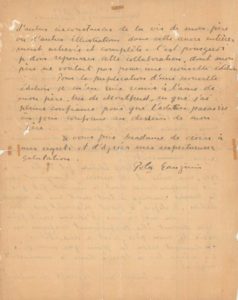 d'autres circonstances de la vie de mon père
ou d'autres illustrations donc cette œuvre entière
serait achevée et complète. C'est pourquoi
je dois repousser cette collaboration, dont mon
père ne voulait pas pour une nouvelle édition
Pour la publication d'une nouvelle
édition je m'en suis remis à l'ami de
mon père, M. de Monfreid, en qui j'ai
pleine confiance pour que l'édition paraisse
un jour conforme au dessein de mon
père.
Je vous prie madame de croire à
mes regrets et d'agréer mes respectueuses
salutations
Pola Gauguin